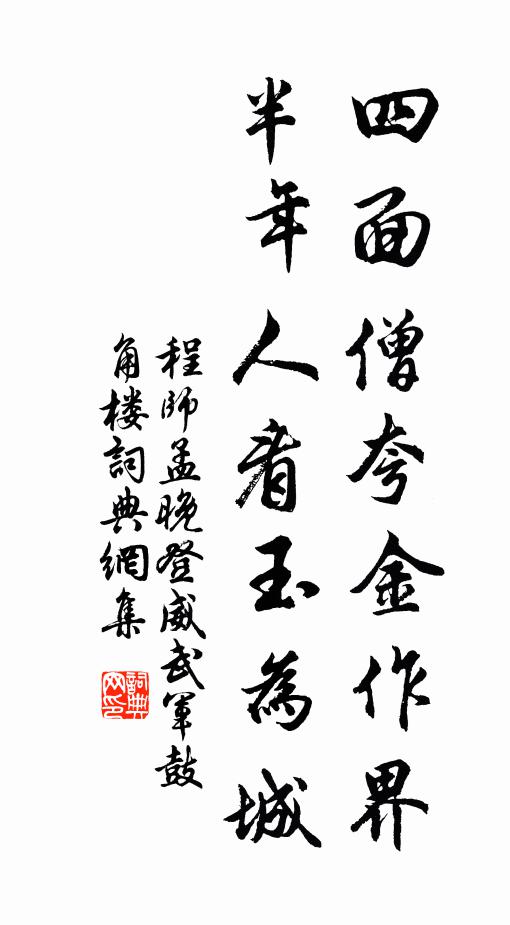 四面僧夸金作界
半年人看玉為城
程師孟晚登威武軍鼓
角楼詞典網集
詞典网印